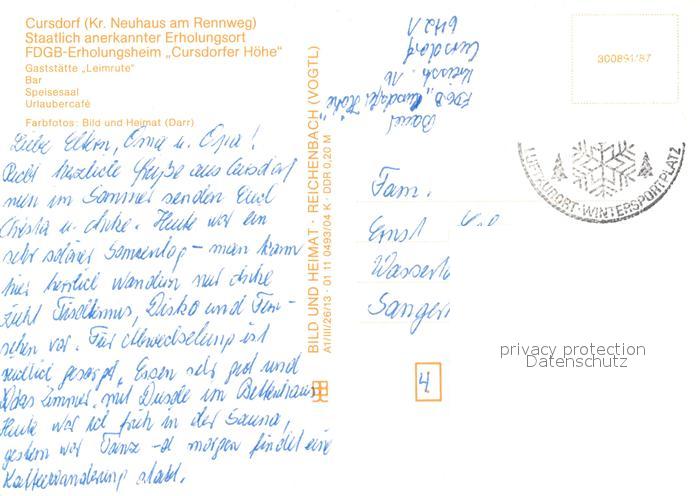 Cursdorf (Kr. Neuhaus am Rennweg)
Staatlich anerkannter Erholungsort
FDGB-Erholungsheim „Cursdorfer Höhe“
Gaststätte „Leimrute“
Bar
Speisesaal
Urlaubercafé
Farbfotos: Bild und Heimat (Darr)
Liebe Eltern, Oma u. Opa!
Recht herzliche Grüße aus Cursdorf
nun im Sommer senden Euch
Christa u. Anke. Heute war ein
sehr schöner Sonnentag – man kann
hier herrlich wandern nur Anke
zieht Tischtennis, Disko und Fern-
sehen vor. Für Abwechselung ist
reichlich gesorgt, Essen sehr gut und
das Zimmer mit Dusche im Bettenhaus
Heute war ich früh in der Sauna,
gestern war Tanz – morgen findet eine
Kaffeewanderung statt.
BILD UND HEIMAT · REICHENBACH (VOGTL)
A1/III/26/13 · 01 11 0493/04 K · DDR 0,20 M
FDGB „Cursdorfer Höhe“
Cursdorf
6421
300891/87
LUFTKURORT·WINTERSPORTPLATZ
Fam.
Ernst
4
privacy protection
Datenschutz